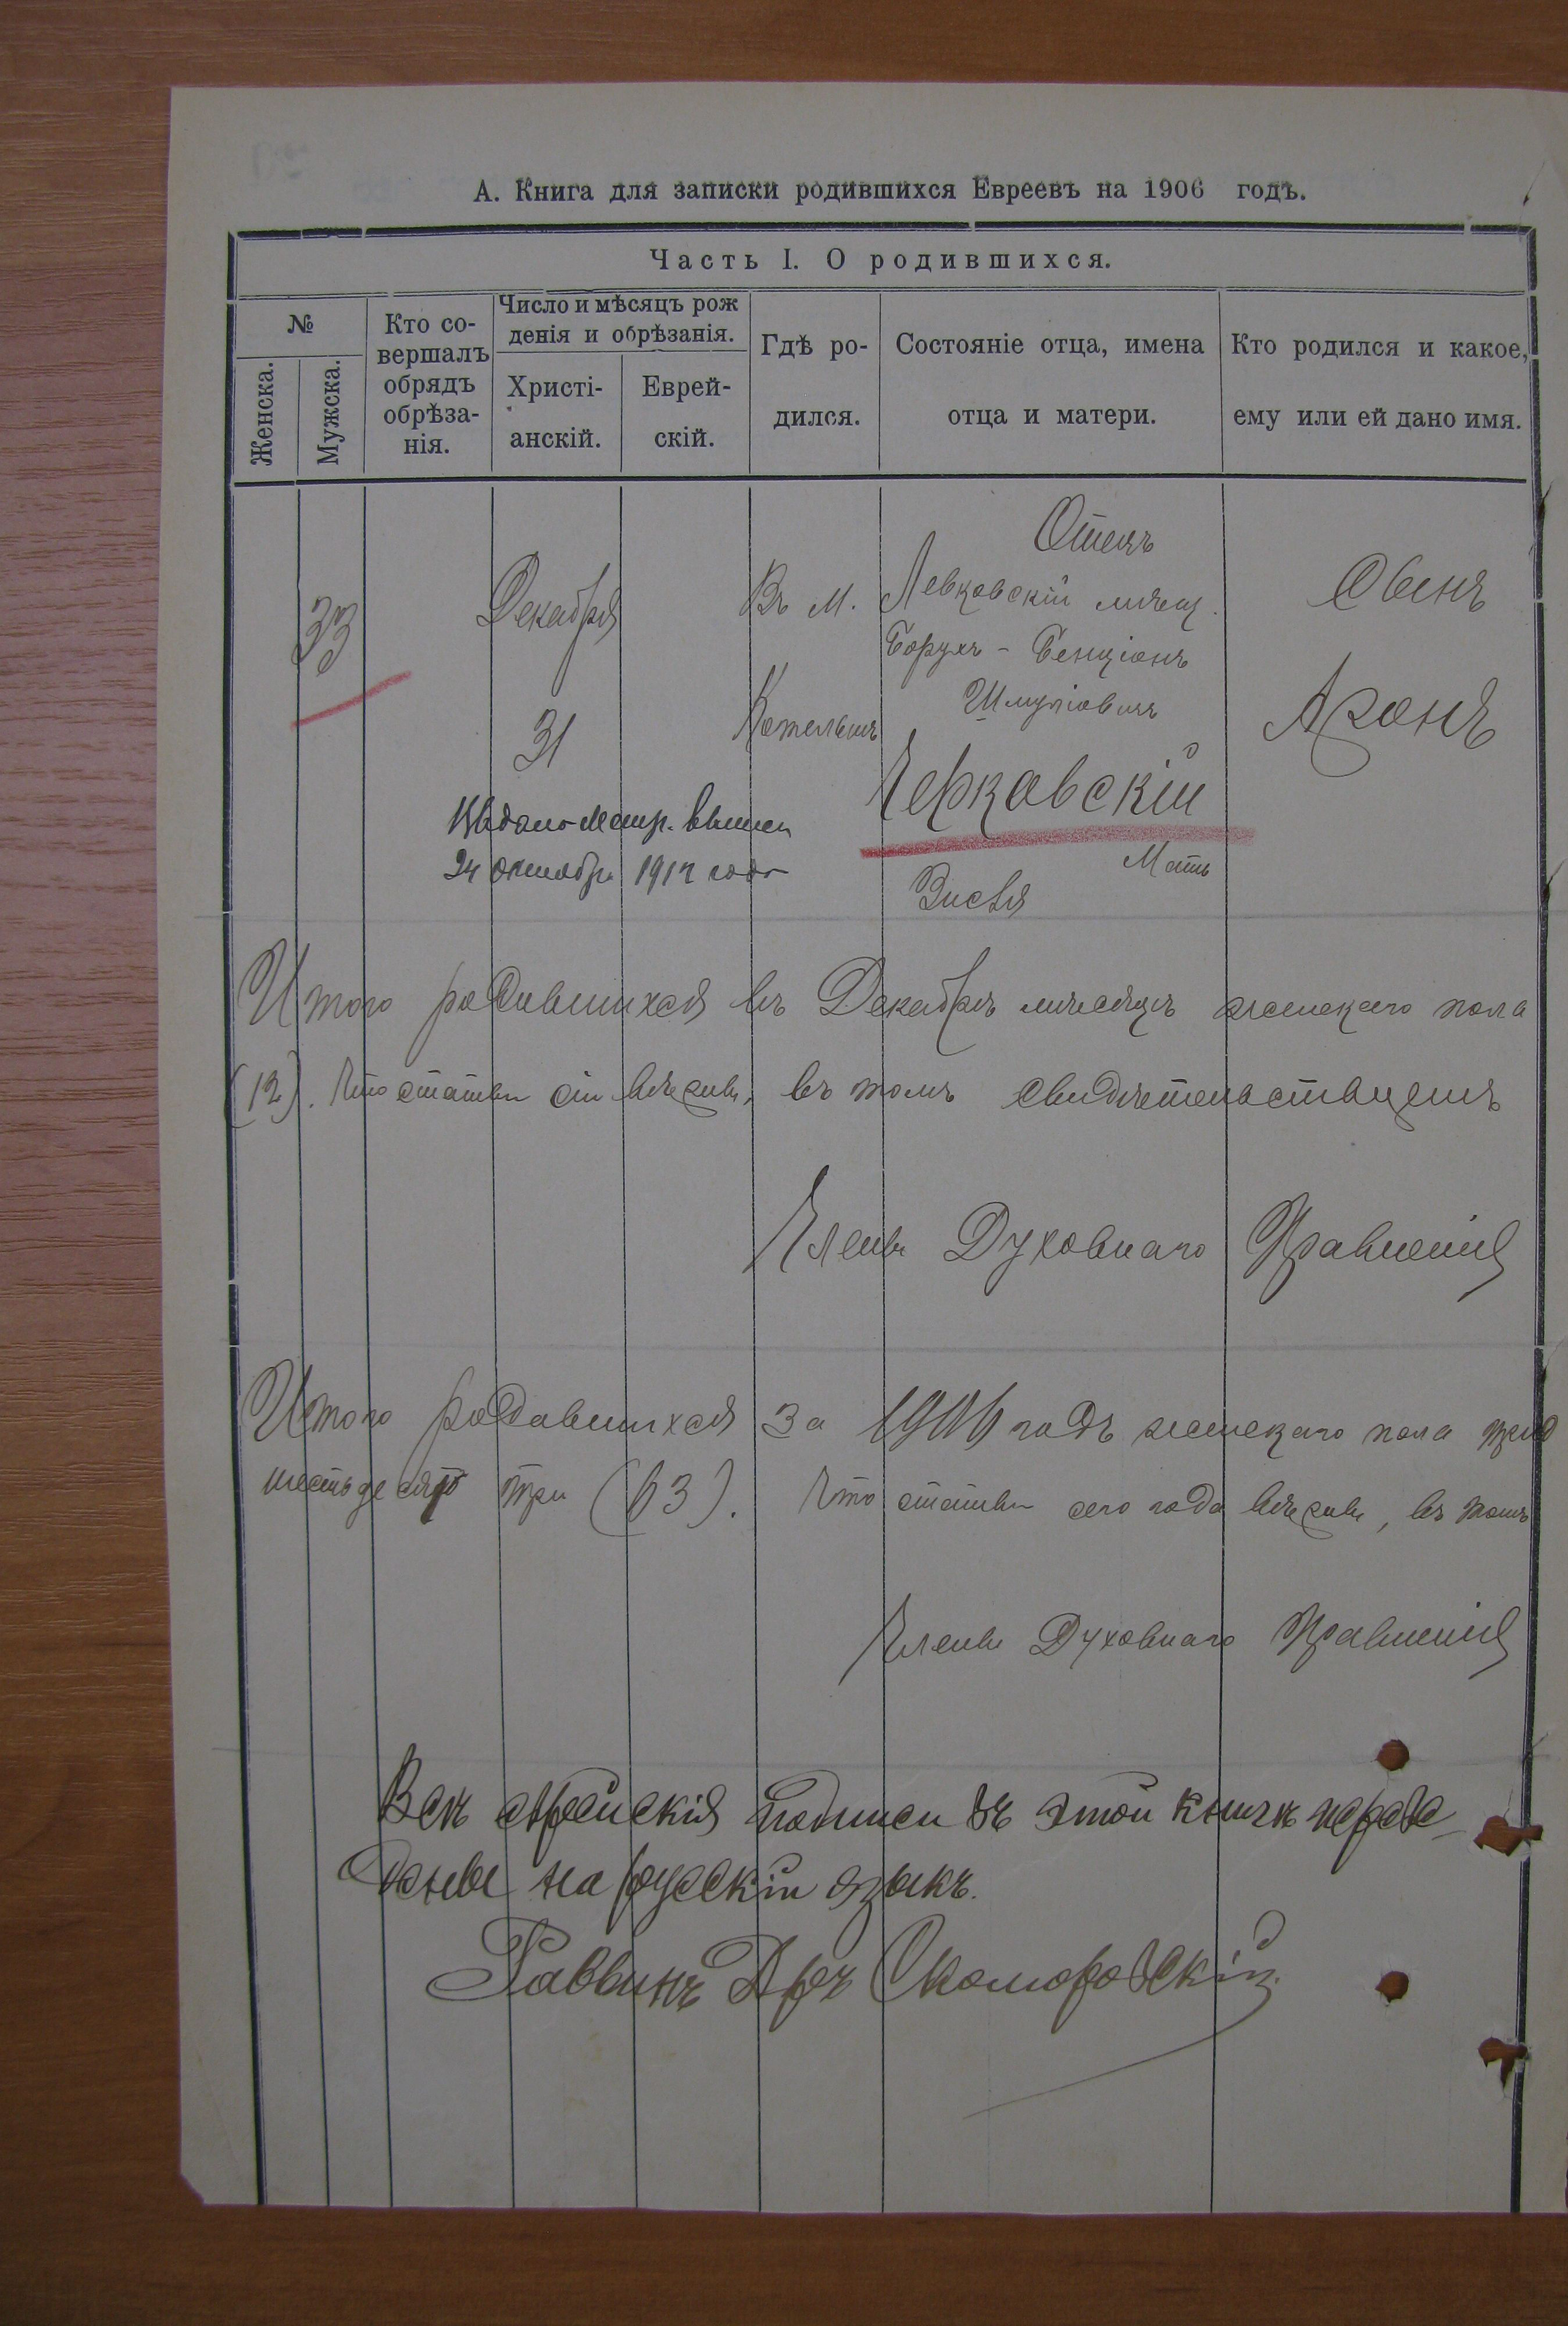 А. Книга для записки родившихся Евреевъ на 1906 годъ.
Часть I. О родившихся.
№
Женска.
Мужска.
Кто со-
вершалъ
обрядъ
обрѣза-
нія.
Число и мѣсяцъ рож
денія и обрѣзанія.
Христі-
анскій.
Еврей-
скій.
Гдѣ ро-
дился.
Состояніе отца, имена
отца и матери.
Кто родился и какое,
ему или ей дано имя.
33
Декабря
31
Въ м.
Котельнѣ
Отецъ
Левковскій мѣщ.
Борухъ-Бенціонъ
Шмулiовичъ
Черкавскій
Мать
Сынъ
Аронъ
Выдано Метр. выпись
24 октября 1912 года
Итого родившихся въ Декабрѣ мѣсяцѣ женскаго пола
(12). Что статьи сіи вѣрны, въ томъ свидѣтельствуемъ
Члены Духовнаго Правленія
Итого родившихся за 1906 годъ женскаго пола
шестьдесятъ три (63). Что статьи сего года вѣрны, въ томъ
Члены Духовнаго Правленія
Всѣ еврейскія подписи въ этой книгѣ переве-
дены на русскій языкъ.
Раввинъ Скоморовскій